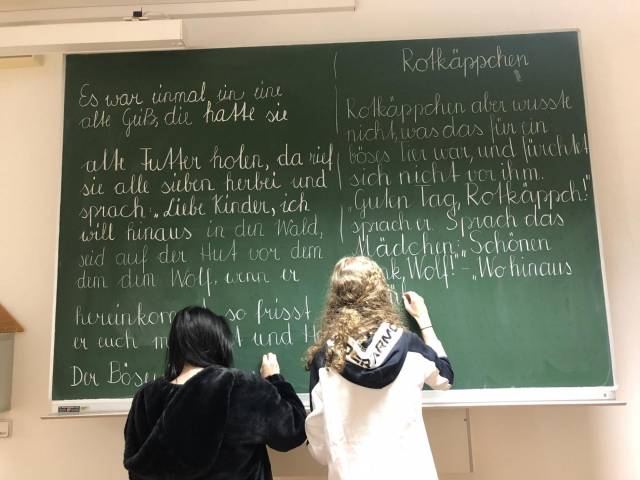 Es war einmal in eine
alte Geiß, die hatte sie
alle Futter holen, da rief
sie alle sieben herbei und
sprach: „Liebe Kinder, ich
will hinaus in den Wald,
seid auf der Hut vor dem
dem dem Wolf, wenn er
so frisst
er euch und
Der
Rotkäppchen
Rotkäppchen aber wusste
nicht, was das für ein
böses Tier war, und fürchtet
sich nicht vor ihm.
„Guten Tag, Rotkäppch!"
sprach er. Sprach das
Mädchen: „Schönen
Wolf!" - „Wo hinaus